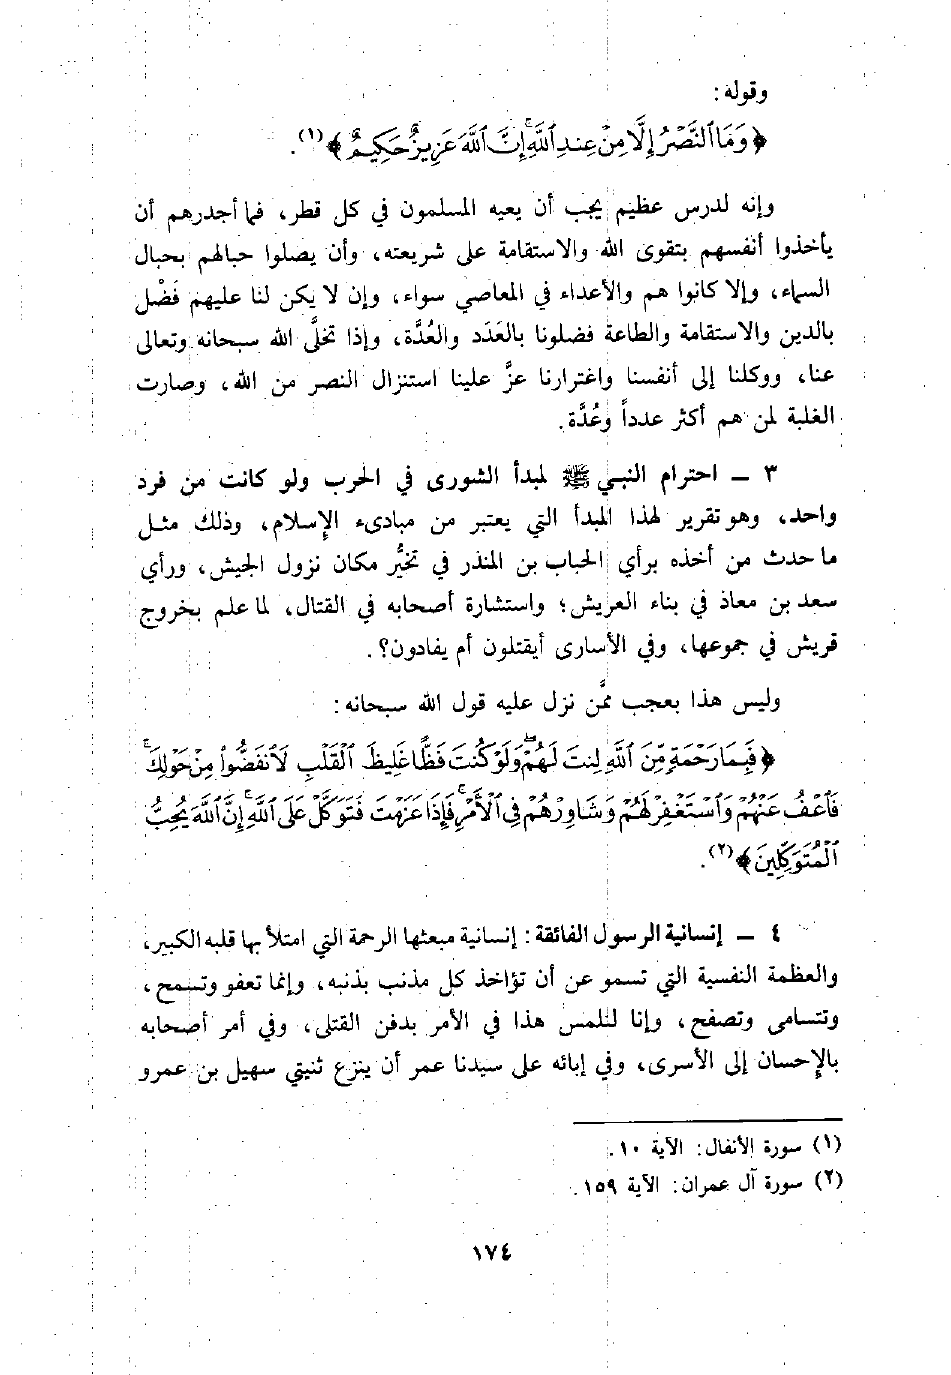 وقوله:
﴿ وَمَا ٱلنَّصْرُ إِلَّا مِنْ عِندِ ٱللَّهِ ۚ إِنَّ ٱللَّهَ عَزِيزٌ حَكِيمٌ ﴾(١).
وإنه لدرس عظيم يجب أن يعيه المسلمون في كل قطر، فما أجدرهم أن
يأخذوا أنفسهم بتقوى الله والاستقامة على شريعته، وأن يصلوا حبالهم بحبال
السماء، وإلا كانوا هم والأعداء في المعاصي سواء، وإن لا يكن لنا عليهم فَضْل
بالدين والاستقامة والطاعة فضلونا بالعَدَد والعُدَّة، وإذا تخلَّى الله سبحانه وتعالى
عنا، ووكلنا إلى أنفسنا واغترارنا عزَّ علينا استنزال النصر من الله، وصارت
الغلبة لمن هم أكثر عدداً وعُدَّة.
٣ ــ احترام النبي ﷺ لمبدأ الشورى في الحرب ولو كانت من فرد
واحد، وهو تقرير لهذا المبدأ التي يعتبر من مبادىء الإسلام، وذلك مثل
ما حدث من أخذه برأي الحباب بن المنذر في تخيُّر مكان نزول الجيش، ورأي
سعد بن معاذ في بناء العريش؛ واستشارة أصحابه في القتال، لما علم بخروج
قريش في جموعها، وفي الأسارى أيقتلون أم يفادون؟.
وليس هذا بعجب ممَّن نزل عليه قول الله سبحانه:
﴿ فَبِمَا رَحْمَةٍ مِّنَ ٱللَّهِ لِنتَ لَهُمْ ۖ وَلَوْ كُنتَ فَظًّا غَلِيظَ ٱلْقَلْبِ لَٱنفَضُّوا۟ مِنْ حَوْلِكَ ۖ
فَٱعْفُ عَنْهُمْ وَٱسْتَغْفِرْ لَهُمْ وَشَاوِرْهُمْ فِى ٱلْأَمْرِ ۖ فَإِذَا عَزَمْتَ فَتَوَكَّلْ عَلَى ٱللَّهِ ۚ إِنَّ ٱللَّهَ يُحِبُّ
ٱلْمُتَوَكِّلِينَ ﴾(٢).
٤ ــ إنسانية الرسول الفائقة: إنسانية مبعثها الرحمة التي امتلأ بها قلبه الكبير،
والعظمة النفسية التي تسمو عن أن تؤاخذ كل مذنب بذنبه، وإنما تعفو وتسمح،
وتتسامى وتصفح، وإنا لنلمس هذا في الأمر بدفن القتلى، وفي أمر أصحابه
بالإحسان إلى الأسرى، وفي إبائه على سيدنا عمر أن ينزع ثنيتي سهيل بن عمرو
(١) سورة الأنفال: الآية ١٠.
(٢) سورة آل عمران: الآية ١٥٩.
١٧٤